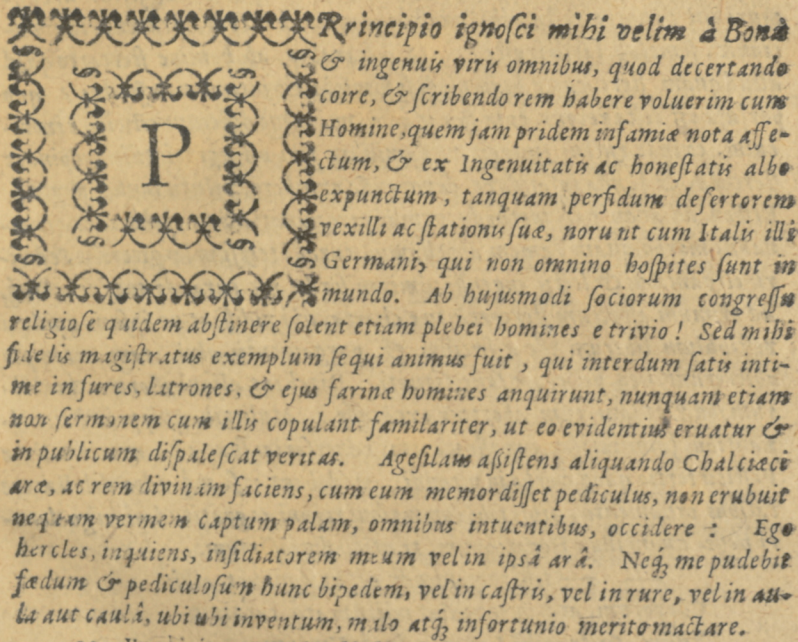 PRrincipio ignoſci mihi velim à Bonis
& ingenuis viris omnibus, quod decertando
coire, & ſcribendo rem habere voluerim cum
Homine, quem jam pridem infamiæ nota affe-
ctum, & ex Ingenuitatis ac honeſtatis albo
expunctum, tanquam perfidum deſertorem
vexilli ac ſtationis ſuæ, norunt cum Italis illi
Germani, qui non omnino hoſpites ſunt in
mundo. Ab hujusmodi ſociorum congreſſu
religioſe quidem abſtinere ſolent etiam plebei homines e trivio! Sed mihi
fidelis magiſtratus exemplum ſequi animus fuit, qui interdum ſatis inti-
me in fures, latrones, & ejus farinæ homines anquirunt, nunquam etiam
non ſermonem cum illis copulant familariter, ut eo evidentius eruatur &
in publicum diſpaleſcat veritas. Ageſilaus aßiſtens aliquando Chalciæci
aræ, ac rem divinam faciens, cum eum memordiſſet pediculus, non erubuit
nequam vermem captum palam, omnibus intuentibus, occidere : Ego
hercles, inquiens, inſidiatorem meum vel in ipsâ arâ. Neq́; me pudebit
fœdum & pediculoſum hunc bipedem, vel in caſtris, vel in rure, vel in au-
la aut caulâ, ubi ubi inventum, malo atq́; infortunio merito mactare.